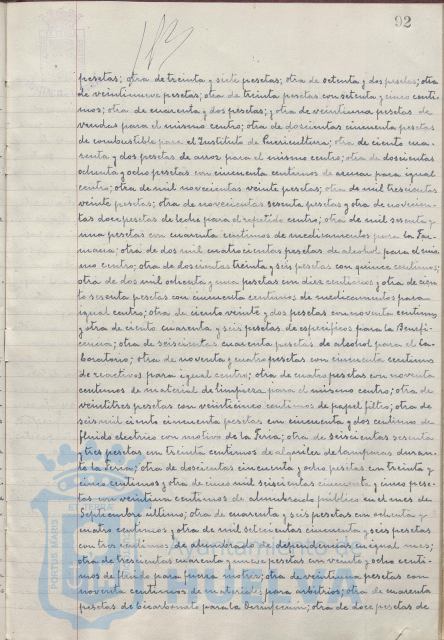 92
pesetas; otra de treinta y siete pesetas; otra de setenta y dos pesetas; otra
de veintinueve pesetas; otra de treinta pesetas con setenta y cinco centi-
mos; otra de cuarenta y dos pesetas; y otra de veintiuna pesetas de
vendas para el mismo centro; otra de doscientas cincuenta pesetas
de combustible para el Instituto de Puericultura; otra de ciento cua-
renta y dos pesetas de arroz para el mismo centro; otra de doscientas
ochenta y ocho pesetas con cincuenta centimos de azucar para igual
centro; otra de mil novecientas veinte pesetas; otra de mil trescientas
veinte pesetas; otra de novecientas sesenta pesetas y otra de novecien-
tas doce pesetas de leche para el repetido centro; otra de mil sesenta y
una pesetas con cuarenta centimos de medicamentos para la Far-
macia; otra de dos mil cuatrocientas pesetas de alcohol para el mis-
mo centro; otra de doscientas treinta y seis pesetas con quince centimos;
otra de dos mil ochenta y una pesetas con diez centimos y otra de cien-
to sesenta pesetas con cincuenta centimos de medicamentos para
igual centro; otra de ciento veinte y dos pesetas con noventa centimos
y otra de ciento cuarenta y seis pesetas de especificos para la Benefi-
cencia; otra de seiscientas cuarenta pesetas de alcohol para el La-
boratorio; otra de noventa y cuatro pesetas con cincuenta centimos
de reactivos para igual centro; otra de cuatro pesetas con noventa
centimos de material de limpieza para el mismo centro; otra de
veintitres pesetas con veinticinco centimos de papel filtro; otra de
seis mil ciento cincuenta pesetas con cincuenta y dos centimos de
fluido electrico con motivo de la Feria; otra de seiscientas sesenta
y tres pesetas con treinta centimos de alquiler de lamparas duran-
te la Feria; otra de doscientas cincuenta y ocho pesetas con treinta y
cinco centimos y otra de cinco mil seiscientas cincuenta y cinco pese-
tas con veintiun centimos de alumbrado público en el mes de
Septiembre último; otra de cuarenta y seis pesetas con ochenta y
cuatro centimos y otra de mil setecientas cincuenta y seis pesetas
con tres centimos de alumbrado de dependencias en igual mes;
otra de trescientas cuarenta y nueve pesetas con veinte y ocho centi-
mos de fluido para fuerza motriz; otra de veintiuna pesetas con
noventa centimos de material para arbitrios; otra de cuarenta
pesetas de bicarbonato para la Desinfeccion; otra de doce pesetas de
PORTUS MARIS
Ayuntamiento de